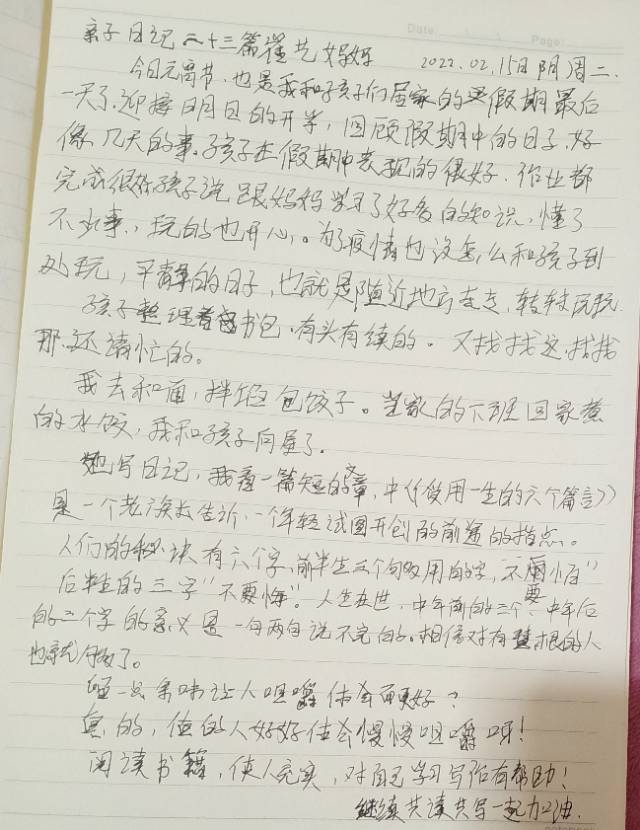 Date: Page:
亲子日记二十三篇 艺妈妈
2022.02.15日 阴 周二.
今日元宵节.也是我和孩子们居家的假期最后
一天了.迎接明日的开学,回顾假期中的日子.好
像几天的事.孩子在假期中表现的很好.作业都
完成很好孩子说跟妈妈学习了好多的知识,懂了
不少事,玩的也开心。为了疫情也没怎么和孩子到
处玩,平静的日子,也就是附近地方走走,转转玩玩.
孩子整理着书包.有头有续的.又找找这,找找
那.还请忙的。
我去和面,拌馅包饺子。当家的下班回家煮
的水饺,我和孩子同屋了.
她写日记,我看一篇短的文章,中《使用一生的六个箴言》
是一个老族长告诉.一个年轻试图开创的前途的指点。
人们的秘诀有六个字,前半生三个字,不要怕"
后半生的三字"不要悔".人生在世.中年前的三个,中年后
的三个字的意义是一句两句说不完的.相信对有慧根的人
也就够了。
一点余味让人咀嚼体会更好?
是的,值的人好好体会慢慢咀嚼呀!
阅读书籍,使人充实,对自己学习写作有帮助!
继续共读共写一起加油.